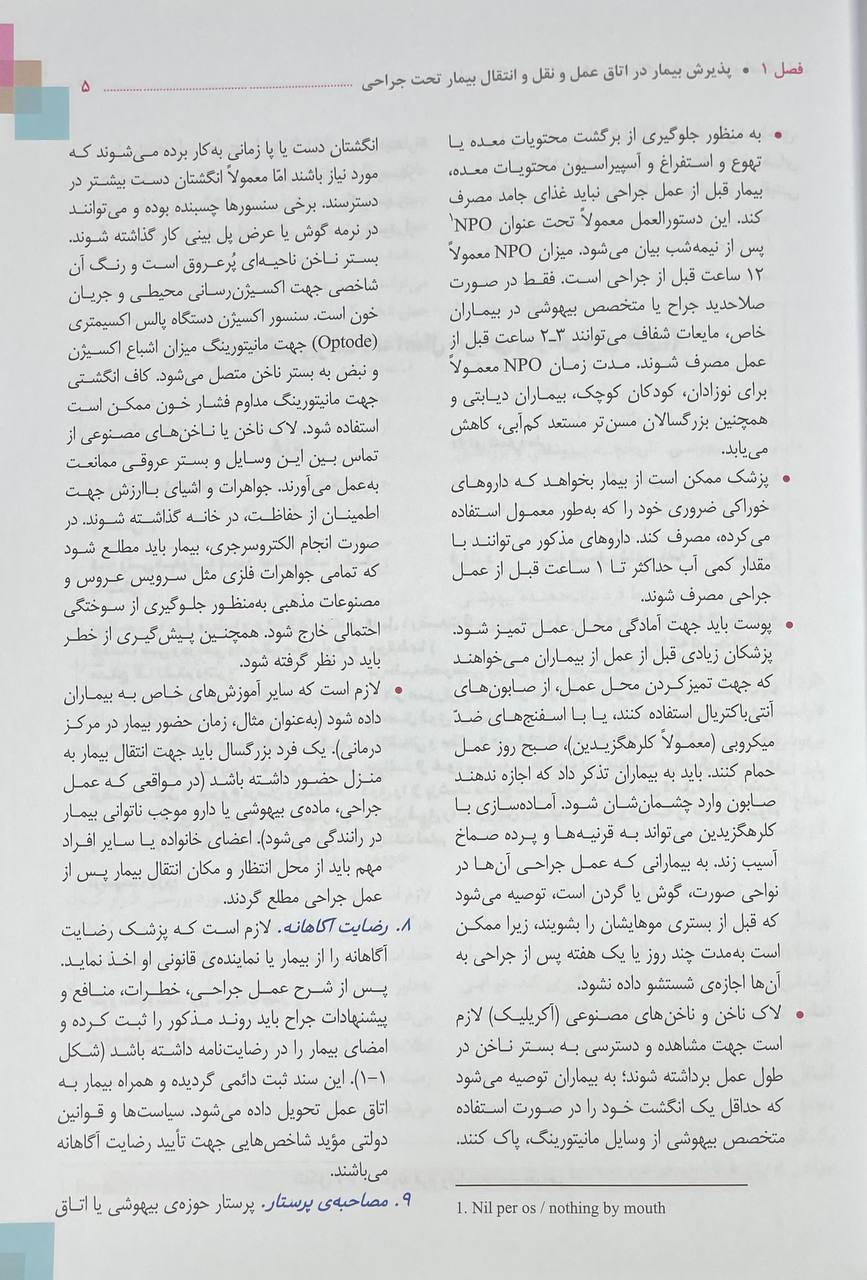 فصل ۱ • پذیرش بیمار در اتاق عمل و نقل و انتقال بیمار تحت جراحی ........ ۵
• به منظور جلوگیری از برگشت محتویات معده یا
تهوع و استفراغ و آسپیراسیون محتویات معده،
بیمار قبل از عمل جراحی نباید غذای جامد مصرف
کند. این دستورالعمل معمولاً تحت عنوان NPO¹
پس از نیمه‌شب بیان می‌شود. میزان NPO معمولاً
۱۲ ساعت قبل از جراحی است. فقط در صورت
صلاحدید جراح یا متخصص بیهوشی در بیماران
خاص، مایعات شفاف می‌توانند ۳-۲ ساعت قبل از
عمل مصرف شوند. مدت زمان NPO معمولاً
برای نوزادان، کودکان کوچک، بیماران دیابتی و
همچنین بزرگسالان مسن‌تر مستعد کم‌آبی، کاهش
می‌یابد.
• پزشک ممکن است از بیمار بخواهد که داروهای
خوراکی ضروری خود را که به‌طور معمول استفاده
می‌کرده، مصرف کند. داروهای مذکور می‌توانند با
مقدار کمی آب حداکثر تا ۱ ساعت قبل از عمل
جراحی مصرف شوند.
• پوست باید جهت آمادگی محل عمل تمیز شود.
پزشکان زیادی قبل از عمل از بیماران می‌خواهند
که جهت تمیزکردن محل عمل، از صابون‌های
آنتی‌باکتریال استفاده کنند، یا با اسفنج‌های ضدّ
میکروبی (معمولاً کلرهگزیدین)، صبح روز عمل
حمام کنند. باید به بیماران تذکر داد که اجازه ندهند
صابون وارد چشمان‌شان شود. آماده‌سازی با
کلرهگزیدین می‌تواند به قرنیه‌ها و پرده صماخ
آسیب زند. به بیمارانی که عمل جراحی آن‌ها در
نواحی صورت، گوش یا گردن است، توصیه می‌شود
که قبل از بستری موهایشان را بشویند، زیرا ممکن
است به‌مدت چند روز یا یک هفته پس از جراحی به
آن‌ها اجازه‌ی شستشو داده نشود.
• لاک ناخن و ناخن‌های مصنوعی (آکریلیک) لازم
است جهت مشاهده و دسترسی به بستر ناخن در
طول عمل برداشته شوند؛ به بیماران توصیه می‌شود
که حداقل یک انگشت خود را در صورت استفاده
متخصص بیهوشی از وسایل مانیتورینگ، پاک کنند.
1. Nil per os / nothing by mouth
انگشتان دست یا پا زمانی به‌کار برده می‌شوند که
مورد نیاز باشند امّا معمولاً انگشتان دست بیشتر در
دسترسند. برخی سنسورها چسبنده بوده و می‌توانند
در نرمه گوش یا عرض پل بینی کار گذاشته شوند.
بستر ناخن ناحیه‌ای پُرعروق است و رنگ آن
شاخصی جهت اکسیژن‌رسانی محیطی و جریان
خون است. سنسور اکسیژن دستگاه پالس اکسیمتری
(Optode) جهت مانیتورینگ میزان اشباع اکسیژن
و نبض به بستر ناخن متصل می‌شود. کاف انگشتی
جهت مانیتورینگ مداوم فشار خون ممکن است
استفاده شود. لاک ناخن یا ناخن‌های مصنوعی از
تماس بین این وسایل و بستر عروقی ممانعت
به‌عمل می‌آورند. جواهرات و اشیای باارزش جهت
اطمینان از حفاظت، در خانه گذاشته شوند. در
صورت انجام الکتروسرجری، بیمار باید مطلع شود
که تمامی جواهرات فلزی مثل سرویس عروس و
مصنوعات مذهبی به‌منظور جلوگیری از سوختگی
احتمالی خارج شود. همچنین پیش‌گیری از خطر
باید در نظر گرفته شود.
• لازم است که سایر آموزش‌های خاص به بیماران
داده شود (به‌عنوان مثال، زمان حضور بیمار در مرکز
درمانی). یک فرد بزرگسال باید جهت انتقال بیمار به
منزل حضور داشته باشد (در مواقعی که عمل
جراحی، ماده‌ی بیهوشی یا دارو موجب ناتوانی بیمار
در رانندگی می‌شود). اعضای خانواده یا سایر افراد
مهم باید از محل انتظار و مکان انتقال بیمار پس از
عمل جراحی مطلع گردند.
۸. رضایت آگاهانه. لازم است که پزشک رضایت
آگاهانه را از بیمار یا نماینده‌ی قانونی او اخذ نماید.
پس از شرح عمل جراحی، خطرات، منافع و
پیشنهادات جراح باید روند مذکور را ثبت کرده و
امضای بیمار را در رضایت‌نامه داشته باشد (شکل
۱-۱). این سند ثبت دائمی گردیده و همراه بیمار به
اتاق عمل تحویل داده می‌شود. سیاست‌ها و قوانین
دولتی مؤید شاخص‌هایی جهت تأیید رضایت آگاهانه
می‌باشند.
۹. مصاحبه‌ی پرستار. پرستار حوزه‌ی بیهوشی یا اتاق